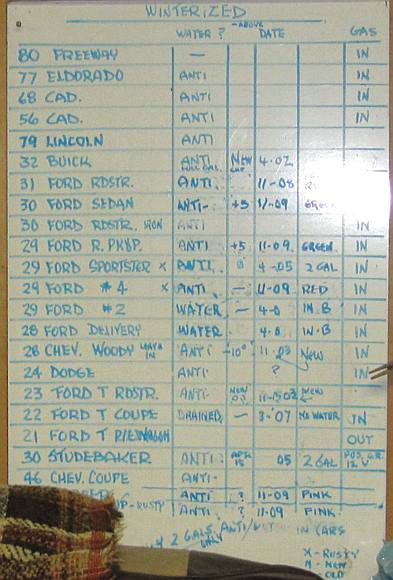 WINTERIZED
WATER ? ABOVE DATE GAS
80 FREEWAY — IN
77 ELDORADO ANTI IN
68 CAD. ANTI IN
56 CAD. ANTI IN
79 LINCOLN ANTI
32 BUICK ANTI NEW 4-02
31 FORD RDSTR. ANTI. 11-08
30 FORD SEDAN ANTI- +5 11-09 GREEN
30 FORD RDSTR. ANTI IN
29 FORD R.PKUP. ANTI +5 11-09 GREEN IN
29 FORD SPORTSTER X ANTI 4-05 2 GAL IN
29 FORD #4 X ANTI — 11-09 RED IN
29 FORD #2 WATER — 4-0 IN.B IN
28 FORD DELIVERY WATER 4-0 IN.B IN
28 CHEV. WOODY IN ANTI -10° 11-03 NEW IN
24 DODGE ANTI ? IN
23 FORD T RDSTR. ANTI- NEW NEW
22 FORD T COUPE DRAINED — 3-07 NO WATER IN
21 FORD T OUT
30 STUDEBAKER ANTI APR 15 05 2 GAL POS. GR. 12 V
46 CHEV. COUPE ANTI-
ANTI ? 11-09 PINK
-RUSTY ANTI ? 11-09 PINK
2 GALS. ANTI IN CARS
ONLY
X-RUSTY
N-NEW
OLD